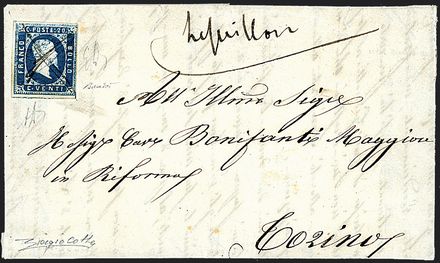 C. POSTE 20
FRANCO
BOLLO
C. VENTI
Lepillon
All' Illmo Sigre
Bonifanti Maggiore
in Riforma
Torino
Giorgio Colla